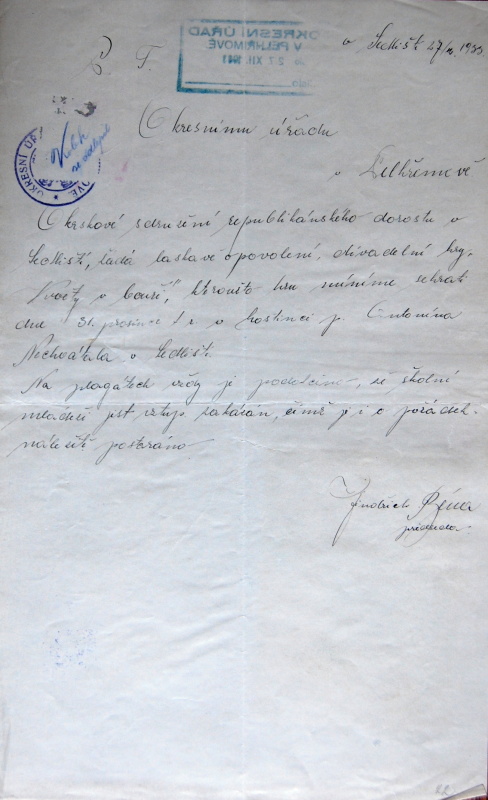 OKRESNÍ ÚŘAD
V PELHŘIMOVĚ
27. XII.
P. T.
v Sedlišti 27/12. 1933
Okresnímu úřadu
v Pelhřimově
OKRESNÍ
Okrskové sdružení republikánského dorostu v
Sedlišti, žádá laskavé opovolení, divadelní hry,
"Kvočty v bouři," kteroužto hru míníme sehrát
dne 31. prosince t. r. v hostinci p. Antonína
Nechvátala v Sedlišti.
Na plagátech vždy je podotčeno, že školní
mládeži jest vstup zakázán, čímž je i o pořádek
náležitě postaráno
Jindřich Péna
předseda